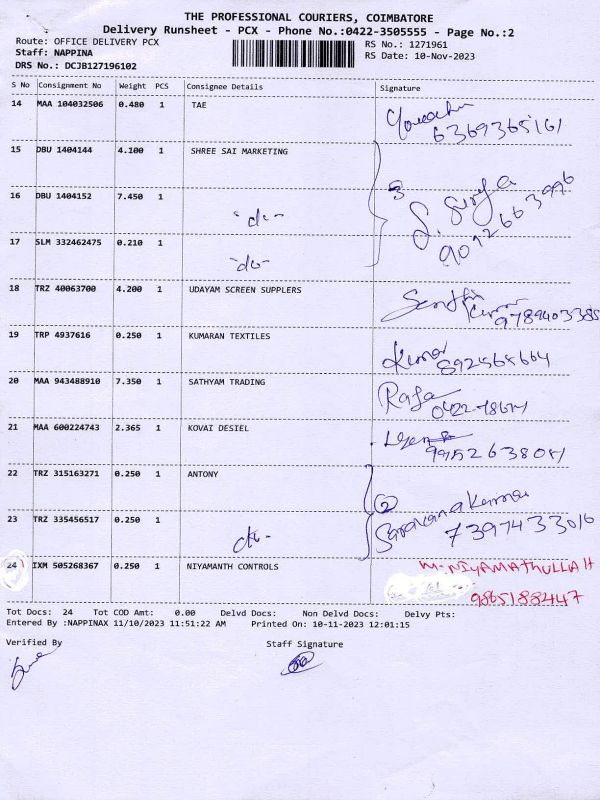 THE PROFESSIONAL COURIERS, COIMBATORE
Delivery Runsheet - PCX - Phone No.:0422-3505555 - Page No.:2
Route: OFFICE DELIVERY PCX RS No.: 1271961
Staff: NAPPINA RS Date: 10-Nov-2023
DRS No.: DCJB127196102
S No Consignment No Weight PCS Consignee Details Signature
14 MAA 104032506 0.480 1 TAE
6369365161
15 DBU 1404144 4.100 1 SHREE SAI MARKETING
16 DBU 1404152 7.450 1 -do- 3 S. Surya
17 SLM 332462475 0.210 1 -do- 9012663996
18 TRZ 40063700 4.200 1 UDAYAM SCREEN SUPPLERS Senthil Kumar
9789403385
19 TRP 4937616 0.250 1 KUMARAN TEXTILES Kumar
8925656664
20 MAA 943488910 7.350 1 SATHYAM TRADING Raja
21 MAA 600224743 2.365 1 KOVAI DESIEL
22 TRZ 315163271 0.250 1 ANTONY 2
23 TRZ 335456517 0.250 1 -do- Saravana Kumar
7397433016
24 IXM 505268367 0.250 1 NIYAMANTH CONTROLS M. NIYAMATHULLAH
9865188447
Tot Docs: 24 Tot COD Amt: 0.00 Delvd Docs: Non Delvd Docs: Delvy Pts:
Entered By :NAPPINAX 11/10/2023 11:51:22 AM Printed On: 10-11-2023 12:01:15
Verified By Staff Signature